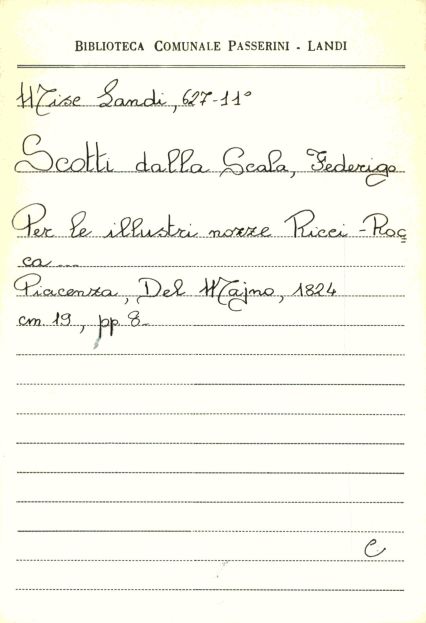 BIBLIOTECA COMUNALE PASSERINI - LANDI
Misc Landi, 627-11°
Scotti dalla Scala, Federigo
Per le illustri nozze Ricci - Roc
ca ...
Piacenza, Del Majno, 1824
cm. 19, pp. 8.
C